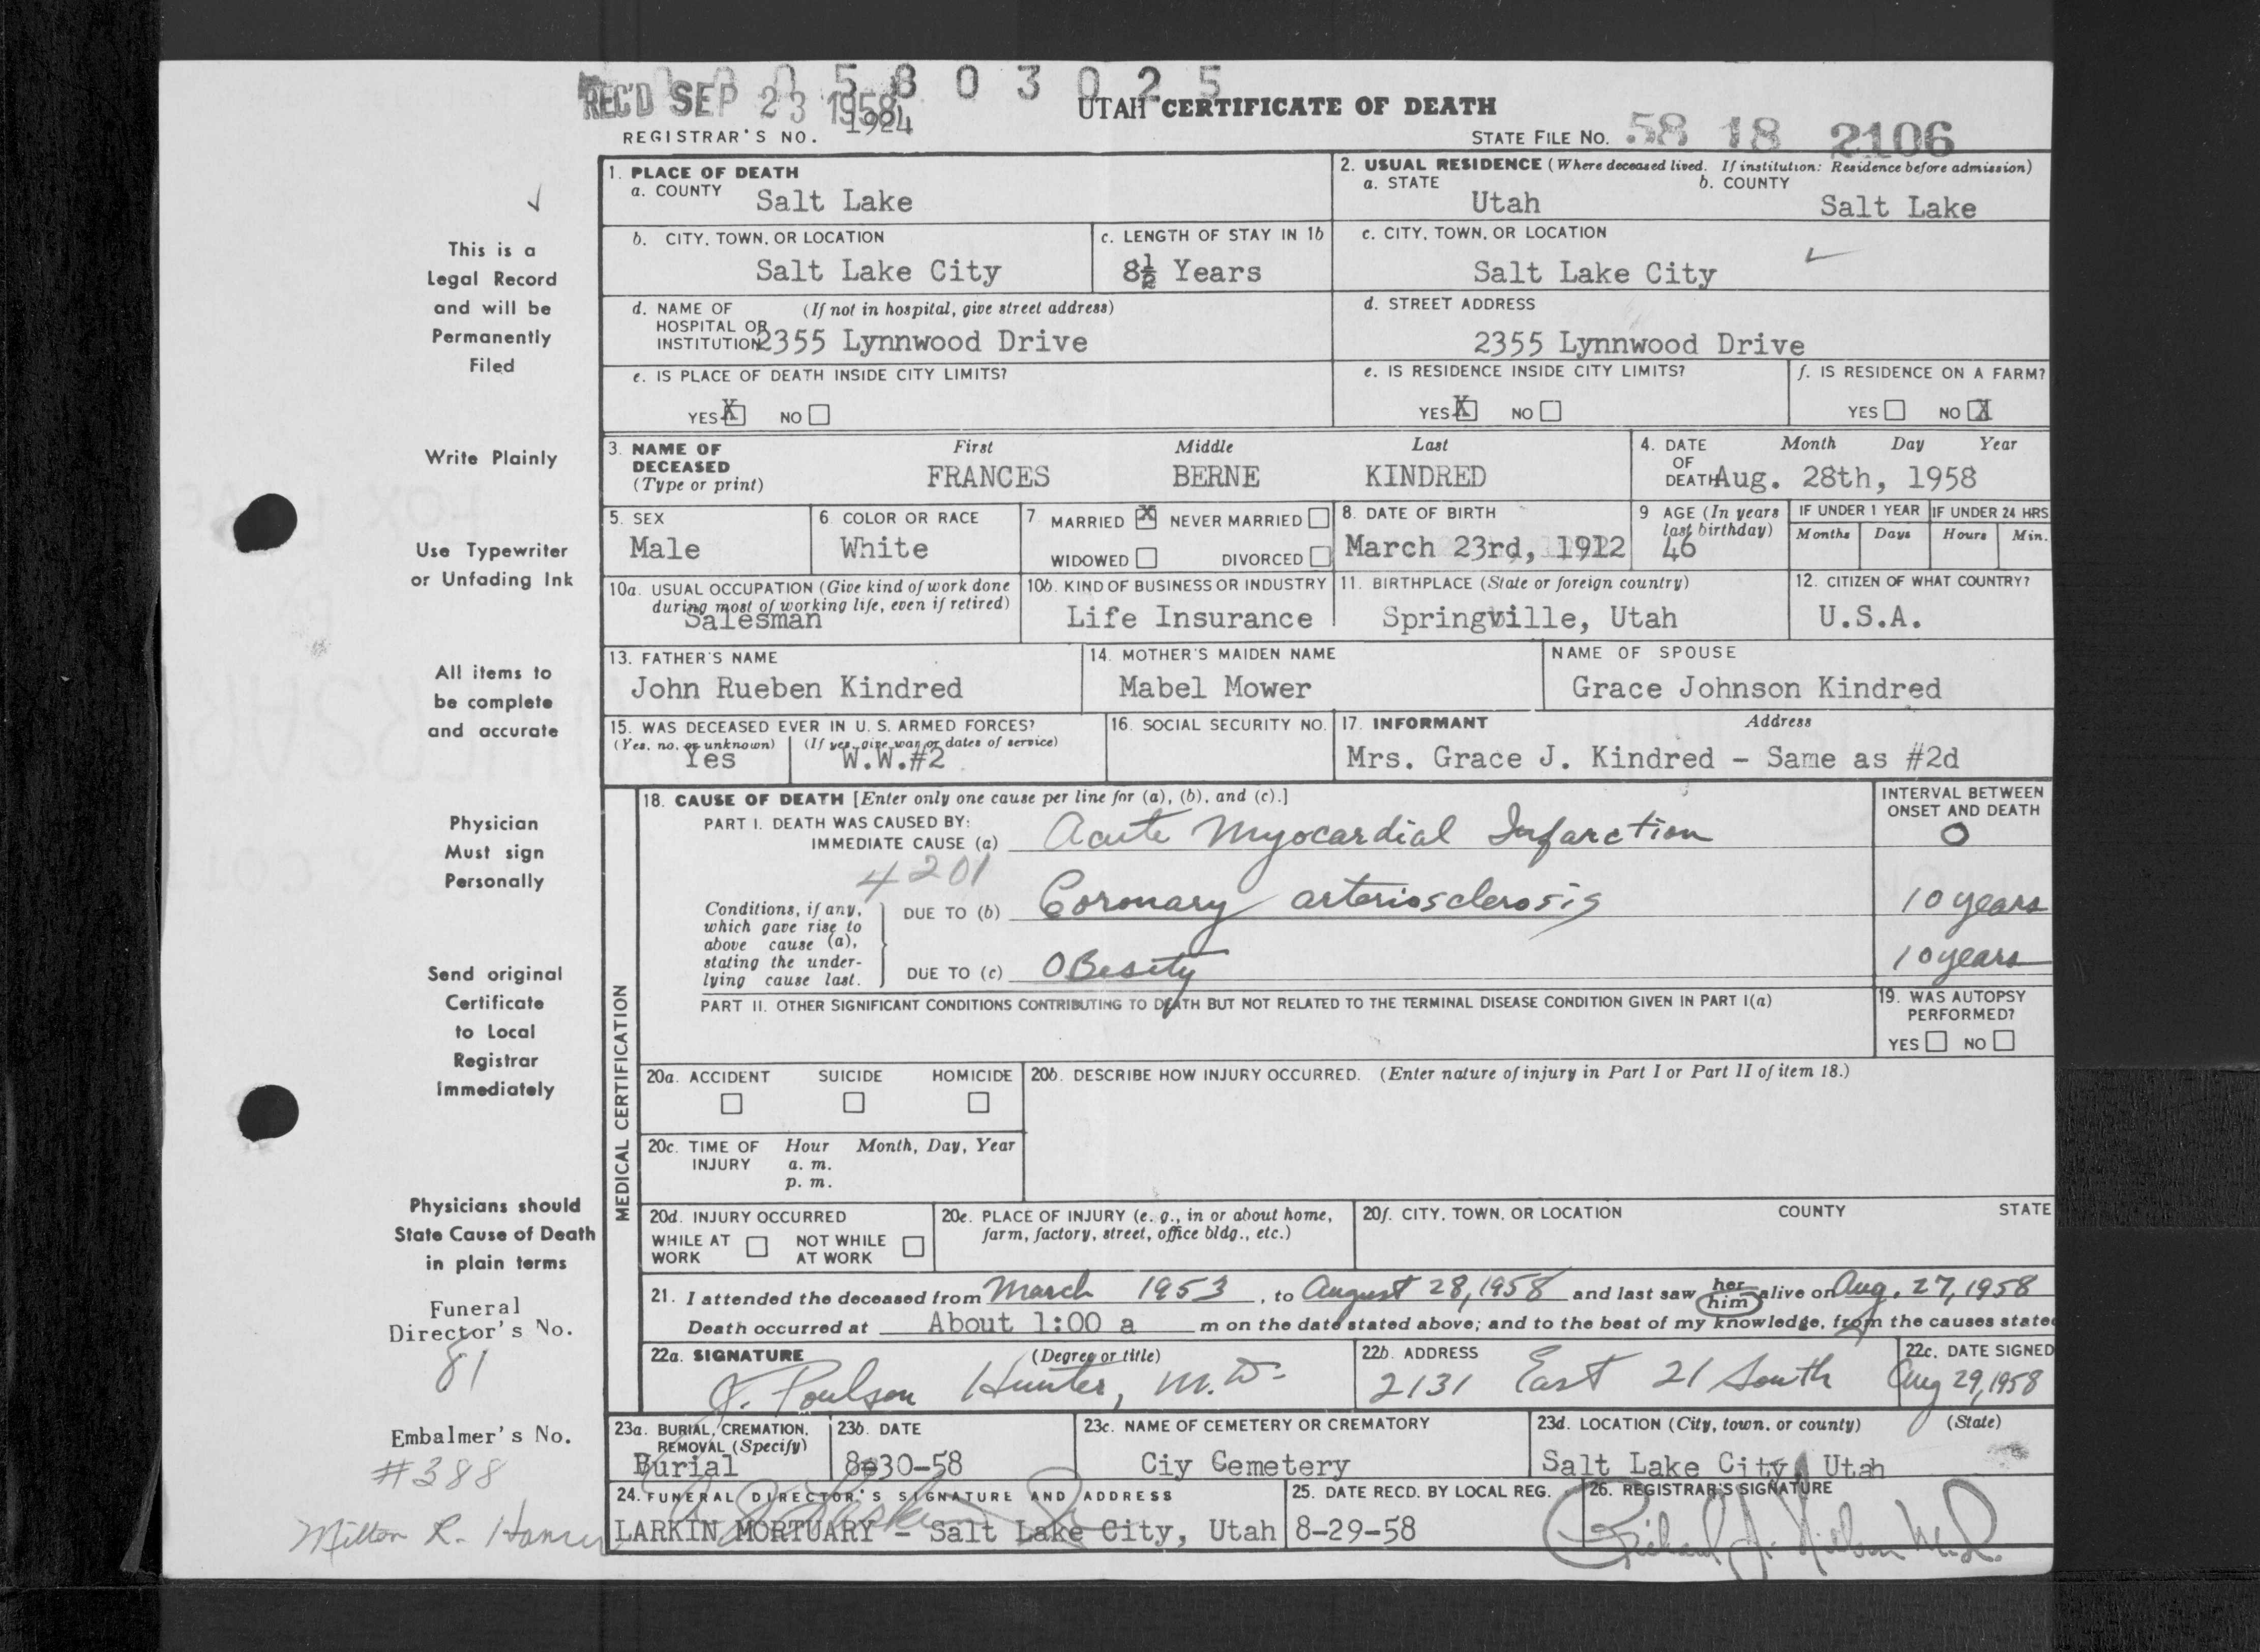 0 5 8 0 3 0 2 5
REC'D SEP 23 1958
1924
REGISTRAR'S NO.
UTAH CERTIFICATE OF DEATH
STATE FILE NO. 58 18 2106
This is a
Legal Record
and will be
Permanently
Filed
Write Plainly
Use Typewriter
or Unfading Ink
All items to
be complete
and accurate
Physician
Must sign
Personally
Send original
Certificate
to Local
Registrar
Immediately
Physicians should
State Cause of Death
in plain terms
Funeral
Director's No.
81
Embalmer's No.
#388
Milton R.
1. PLACE OF DEATH
a. COUNTY Salt Lake
2. USUAL RESIDENCE (Where deceased lived. If institution: Residence before admission)
a. STATE Utah b. COUNTY Salt Lake
b. CITY, TOWN, OR LOCATION Salt Lake City
c. LENGTH OF STAY IN 1b 8½ Years
c. CITY, TOWN, OR LOCATION Salt Lake City
d. NAME OF (If not in hospital, give street address)
HOSPITAL OR
INSTITUTION 2355 Lynnwood Drive
d. STREET ADDRESS
2355 Lynnwood Drive
e. IS PLACE OF DEATH INSIDE CITY LIMITS?
YES X NO
e. IS RESIDENCE INSIDE CITY LIMITS?
YES X NO
f. IS RESIDENCE ON A FARM?
YES NO X
3. NAME OF DECEASED (Type or print)
First Middle Last
FRANCES BERNE KINDRED
4. DATE OF DEATH Month Day Year
Aug. 28th, 1958
5. SEX
Male
6. COLOR OR RACE
White
7. MARRIED X NEVER MARRIED
WIDOWED DIVORCED
8. DATE OF BIRTH
March 23rd, 1912
9 AGE (In years last birthday)
46
IF UNDER 1 YEAR
Months Days
IF UNDER 24 HRS
Hours Min.
10a. USUAL OCCUPATION (Give kind of work done during most of working life, even if retired)
Salesman
10b. KIND OF BUSINESS OR INDUSTRY
Life Insurance
11. BIRTHPLACE (State or foreign country)
Springville, Utah
12. CITIZEN OF WHAT COUNTRY?
U.S.A.
13. FATHER'S NAME
John Rueben Kindred
14. MOTHER'S MAIDEN NAME
Mabel Mower
NAME OF SPOUSE
Grace Johnson Kindred
15. WAS DECEASED EVER IN U. S. ARMED FORCES?
(Yes, no, or unknown) (If yes, give war or dates of service)
Yes W.W.#2
16. SOCIAL SECURITY NO.
17. INFORMANT Address
Mrs. Grace J. Kindred - Same as #2d
MEDICAL CERTIFICATION
18. CAUSE OF DEATH [Enter only one cause per line for (a), (b), and (c).]
INTERVAL BETWEEN ONSET AND DEATH
PART I. DEATH WAS CAUSED BY:
IMMEDIATE CAUSE (a) Acute Myocardial Infarction 0
4201
Conditions, if any, which gave rise to above cause (a), stating the underlying cause last.
DUE TO (b) Coronary arteriosclerosis 10 years
DUE TO (c) OBesity 10 years
PART II. OTHER SIGNIFICANT CONDITIONS CONTRIBUTING TO DEATH BUT NOT RELATED TO THE TERMINAL DISEASE CONDITION GIVEN IN PART I(a)
19. WAS AUTOPSY PERFORMED?
YES NO
20a. ACCIDENT SUICIDE HOMICIDE
20b. DESCRIBE HOW INJURY OCCURRED. (Enter nature of injury in Part I or Part II of item 18.)
20c. TIME OF INJURY Hour Month, Day, Year
a. m.
p. m.
20d. INJURY OCCURRED
WHILE AT WORK NOT WHILE AT WORK
20e. PLACE OF INJURY (e. g., in or about home, farm, factory, street, office bldg., etc.)
20f. CITY, TOWN, OR LOCATION COUNTY STATE
21. I attended the deceased from March 1953, to August 28, 1958 and last saw her him alive on Aug. 27, 1958
Death occurred at About 1:00 a m on the date stated above; and to the best of my knowledge, from the causes stated
22a. SIGNATURE (Degree or title)
J. Poulson Hunter, M.D.
22b. ADDRESS
2131 East 21 South
22c. DATE SIGNED
Aug 29, 1958
23a. BURIAL, CREMATION, REMOVAL (Specify)
Burial
23b. DATE
8-30-58
23c. NAME OF CEMETERY OR CREMATORY
Ciy Cemetery
23d. LOCATION (City, town, or county) (State)
Salt Lake City, Utah
24. FUNERAL DIRECTOR'S SIGNATURE AND ADDRESS
LARKIN MORTUARY - Salt Lake City, Utah
25. DATE RECD. BY LOCAL REG.
8-29-58
26. REGISTRAR'S SIGNATURE